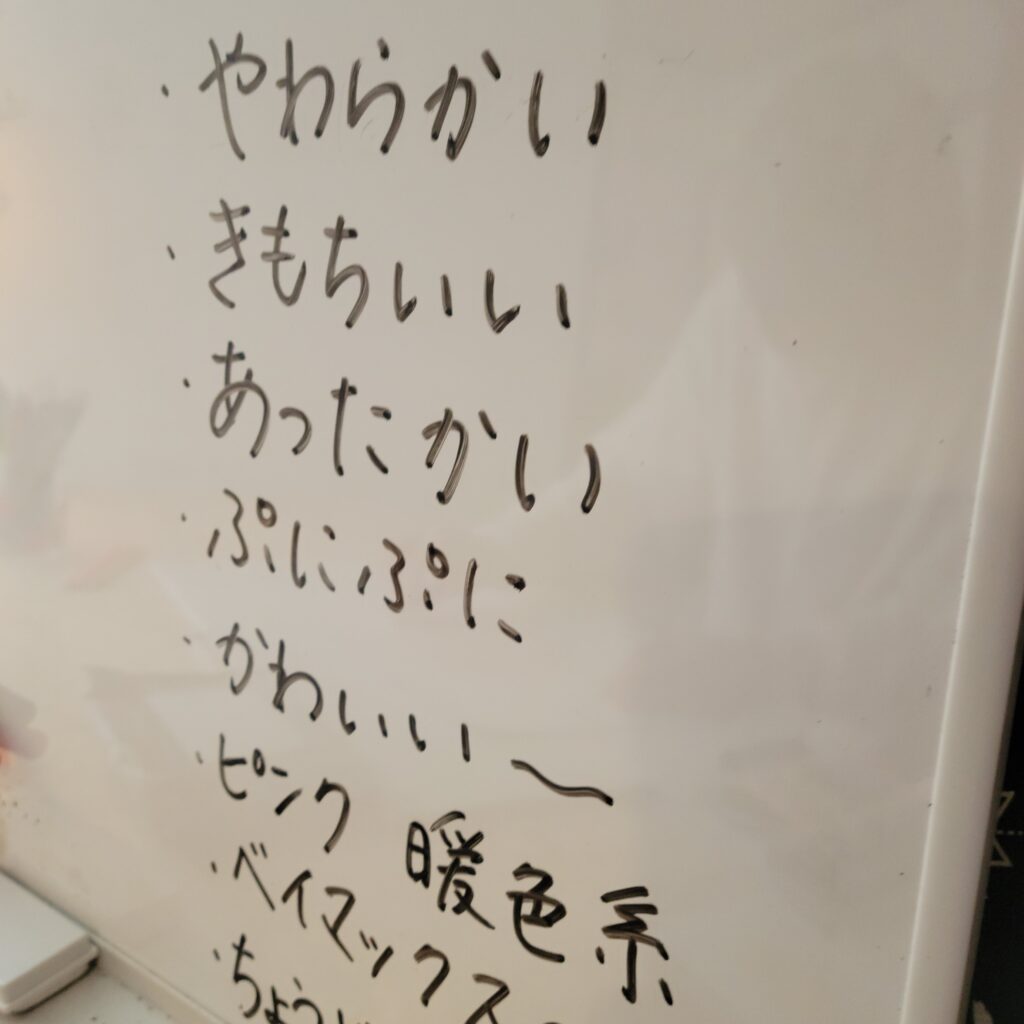 ・やわらかい
・きもちいい
・あったかい
・ぷにぷに
・かわいい～
・ピンク 暖色系
・ベイマックス